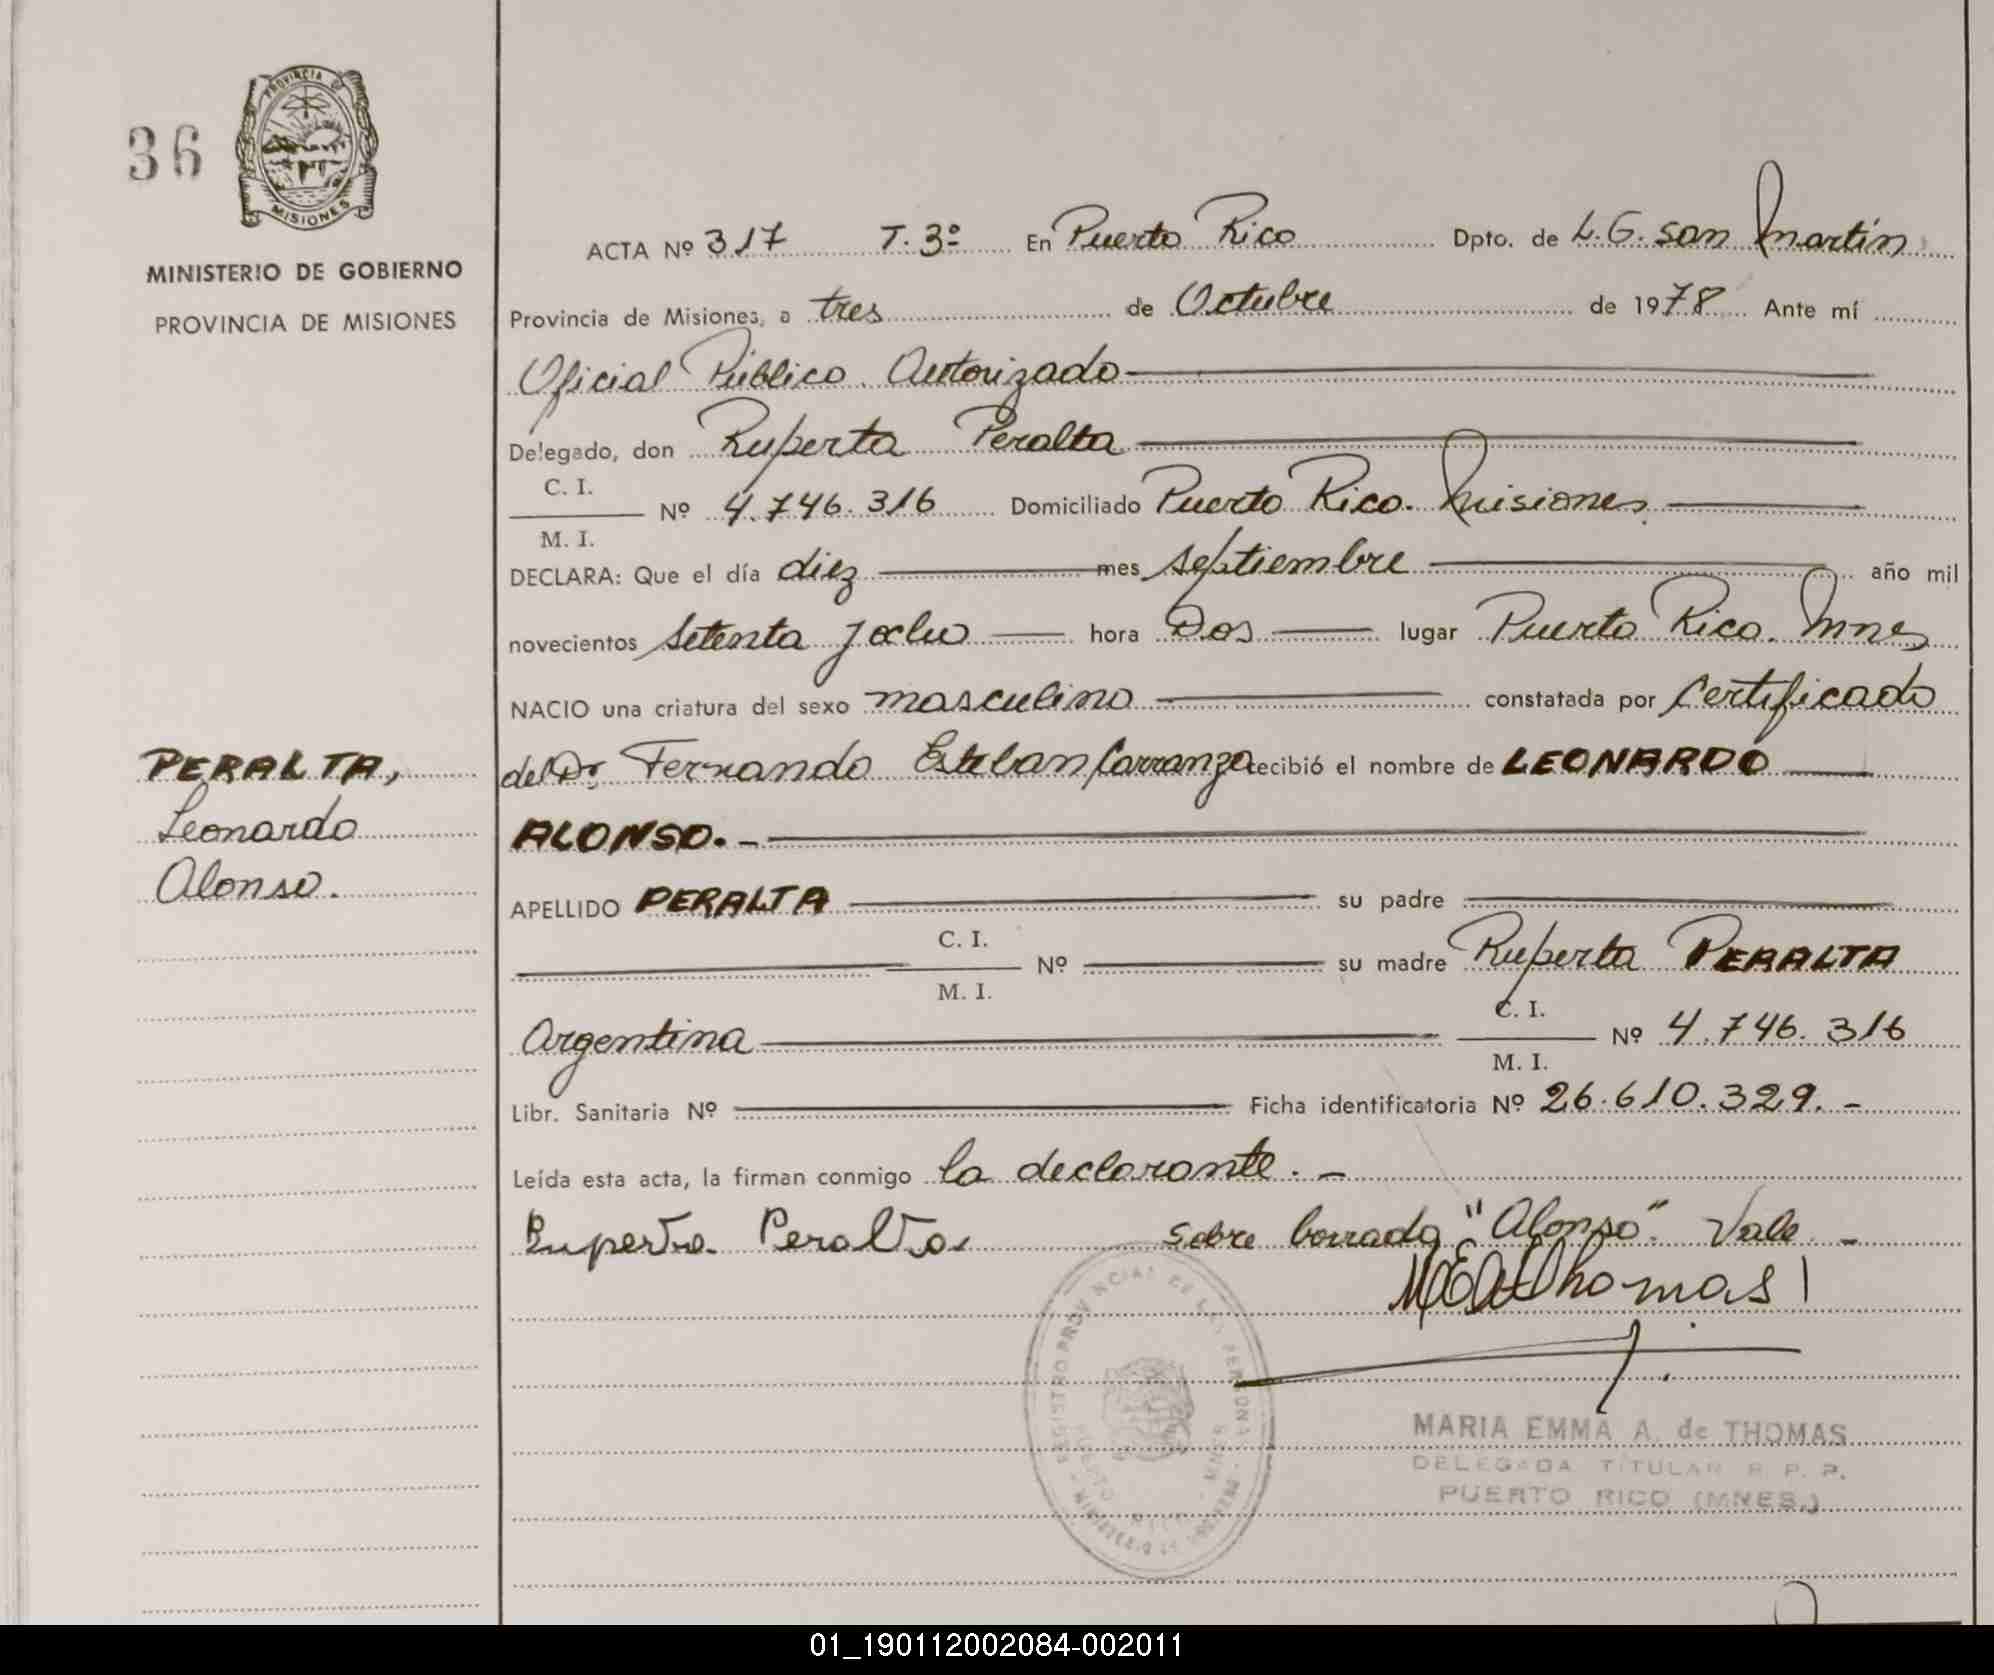 36
PROVINCIA DE
MISIONES
MINISTERIO DE GOBIERNO
PROVINCIA DE MISIONES
PERALTA,
Leonardo
Alonso.
ACTA Nº 317 T. 3º En Puerto Rico Dpto. de L. G. San Martín
Provincia de Misiones, a tres de Octubre de 1978 Ante mí
Oficial Público Autorizado
Delegado, don Ruperta Peralta
C. I.
Nº 4.746.316 Domiciliado Puerto Rico. Misiones
M. I.
DECLARA: Que el día diez mes septiembre año mil
novecientos setenta y ocho hora Dos lugar Puerto Rico. Mnes
NACIO una criatura del sexo masculino constatada por Certificado
del Dr Fernando Esteban Carranza recibió el nombre de LEONARDO
ALONSO. -
APELLIDO PERALTA su padre
C. I.
Nº su madre Ruperta PERALTA
M. I.
C. I.
Argentina Nº 4.746.316
M. I.
Libr. Sanitaria Nº Ficha identificatoria Nº 26.610.329. -
Leída esta acta, la firman conmigo la declarante. -
Ruperta Peralta sobre borrado "Alonso". Vale -
MEA Thomas
MARIA EMMA A. de THOMAS
DELEGADA TITULAR R. P. P.
PUERTO RICO (MNES.)
01_190112002084-002011